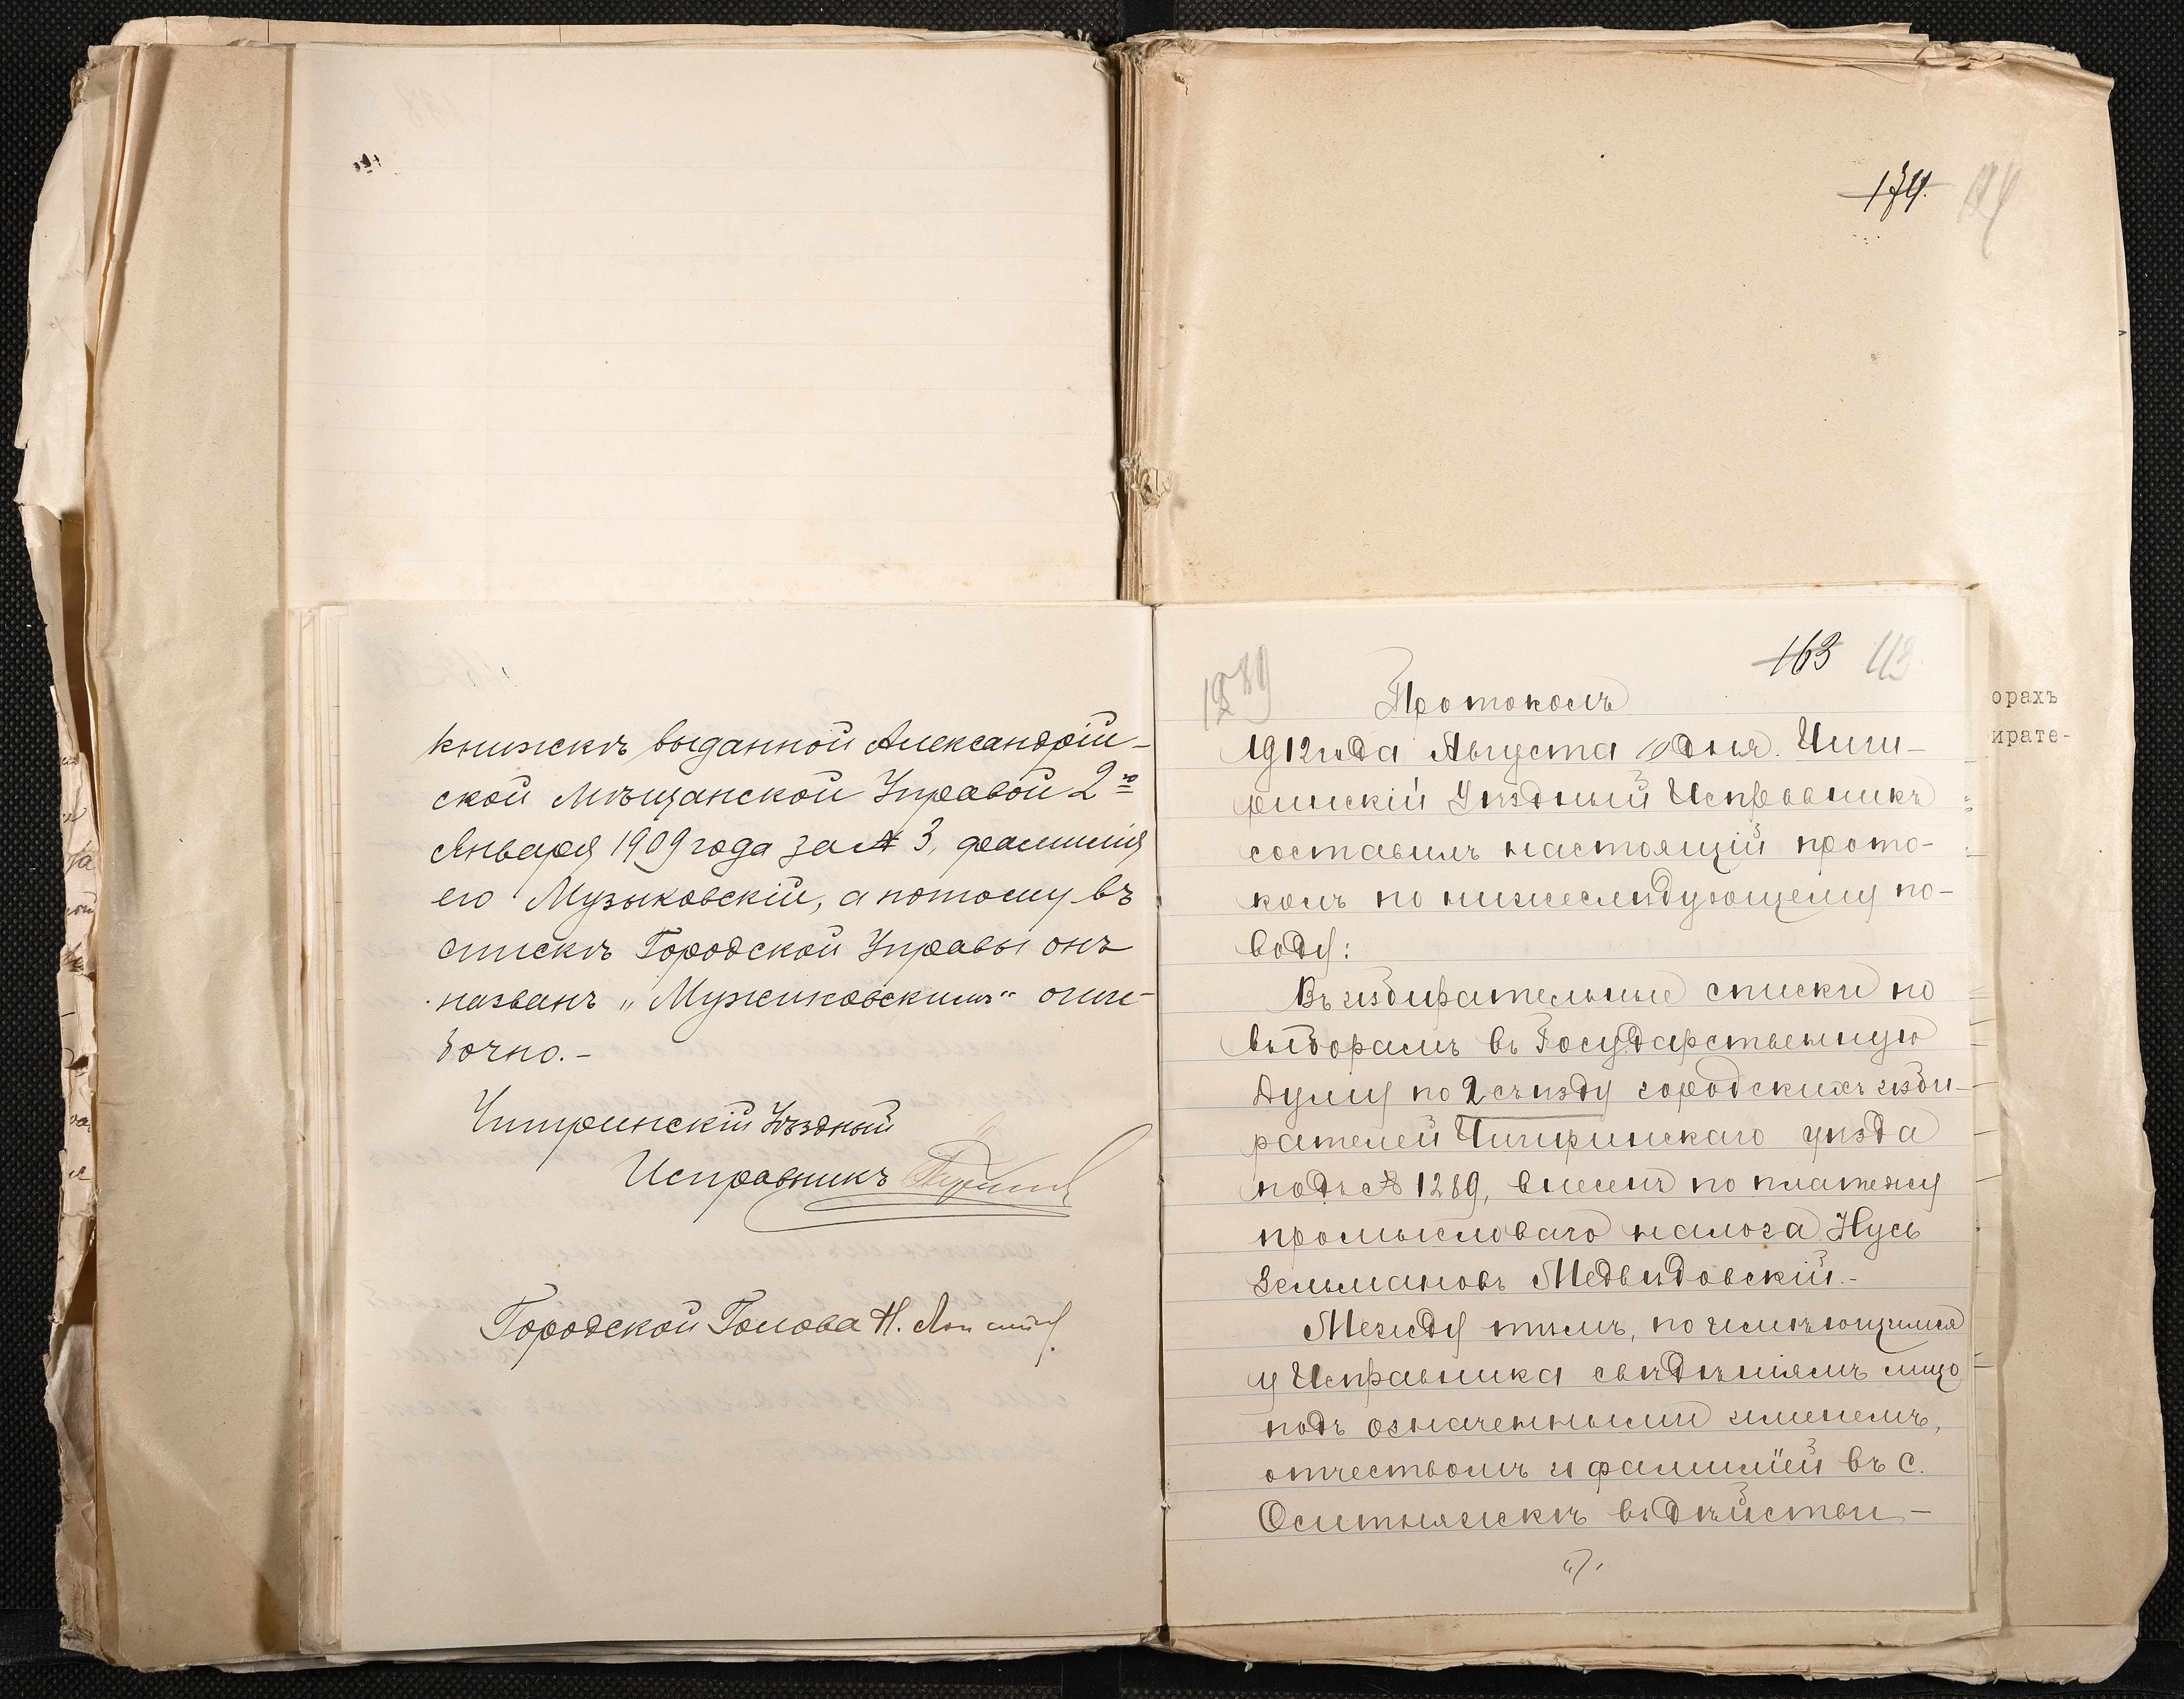 книжкѣ выданной Александрій-
ской Мѣщанской Управой 2го
Января 1909 года за № 3, фамилія
его Музыковскій, а потому въ
спискѣ Городской Управы онъ
названъ „Мужиковскимъ“ оши-
бочно.-
Чигиринскій Уѣздный
Исправникъ
Городской Голова Н.
174.
163 113
1289
Протоколъ
1912 года Августа 10 дня. Чиги-
ринскій Уѣздный Исправникъ
составилъ настоящій прото-
колъ по нижеслѣдующему по-
воду:
Въ избирательные списки по
выборамъ въ Государственную
Думу по 2 съѣзду городскихъ изби-
рателей Чигиринскаго уѣзда
подъ № 1289, внесенъ по платежу
промысловаго налога Нусь
Зельмановъ Медвѣдовскій.-
Между тѣмъ, по имѣющимся
у Исправника свѣдѣніямъ лицо
подъ означеннымъ именемъ,
отчествомъ и фамиліей въ с.
Оситняжкѣ въ дѣйстви-
орахъ
ирате-